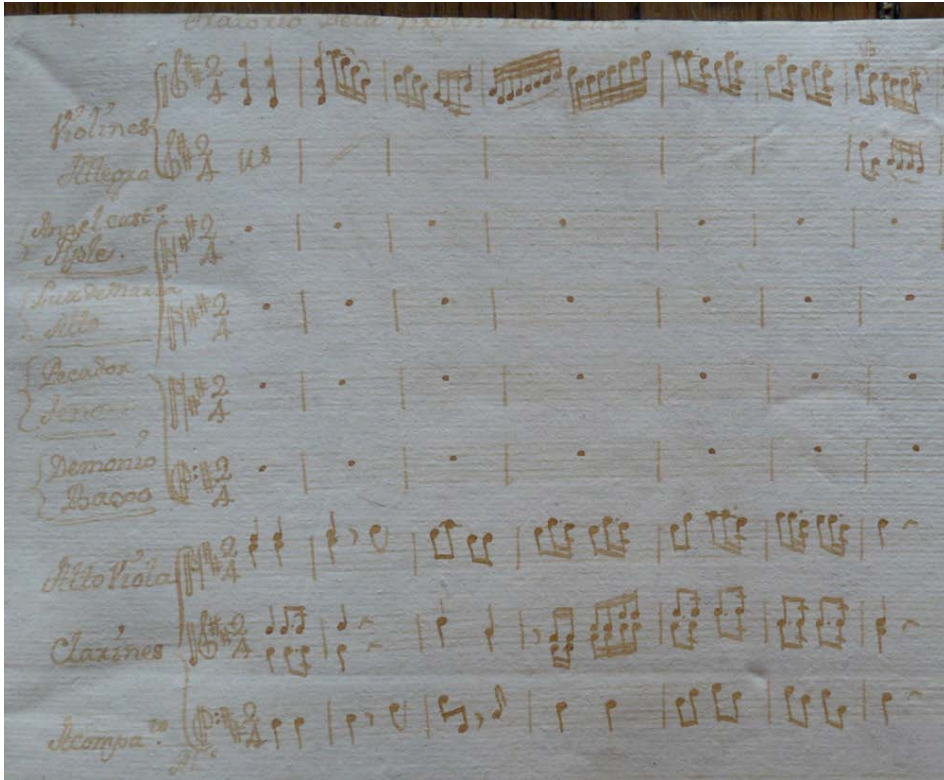 Oratorio
Violines
Allegro
us
Angel cust.º
Tiple.
Luz de Maria
Alto
Pecador
Tenor
Demonio
Baxo
Alto Viola
Clarines
Acompa.to